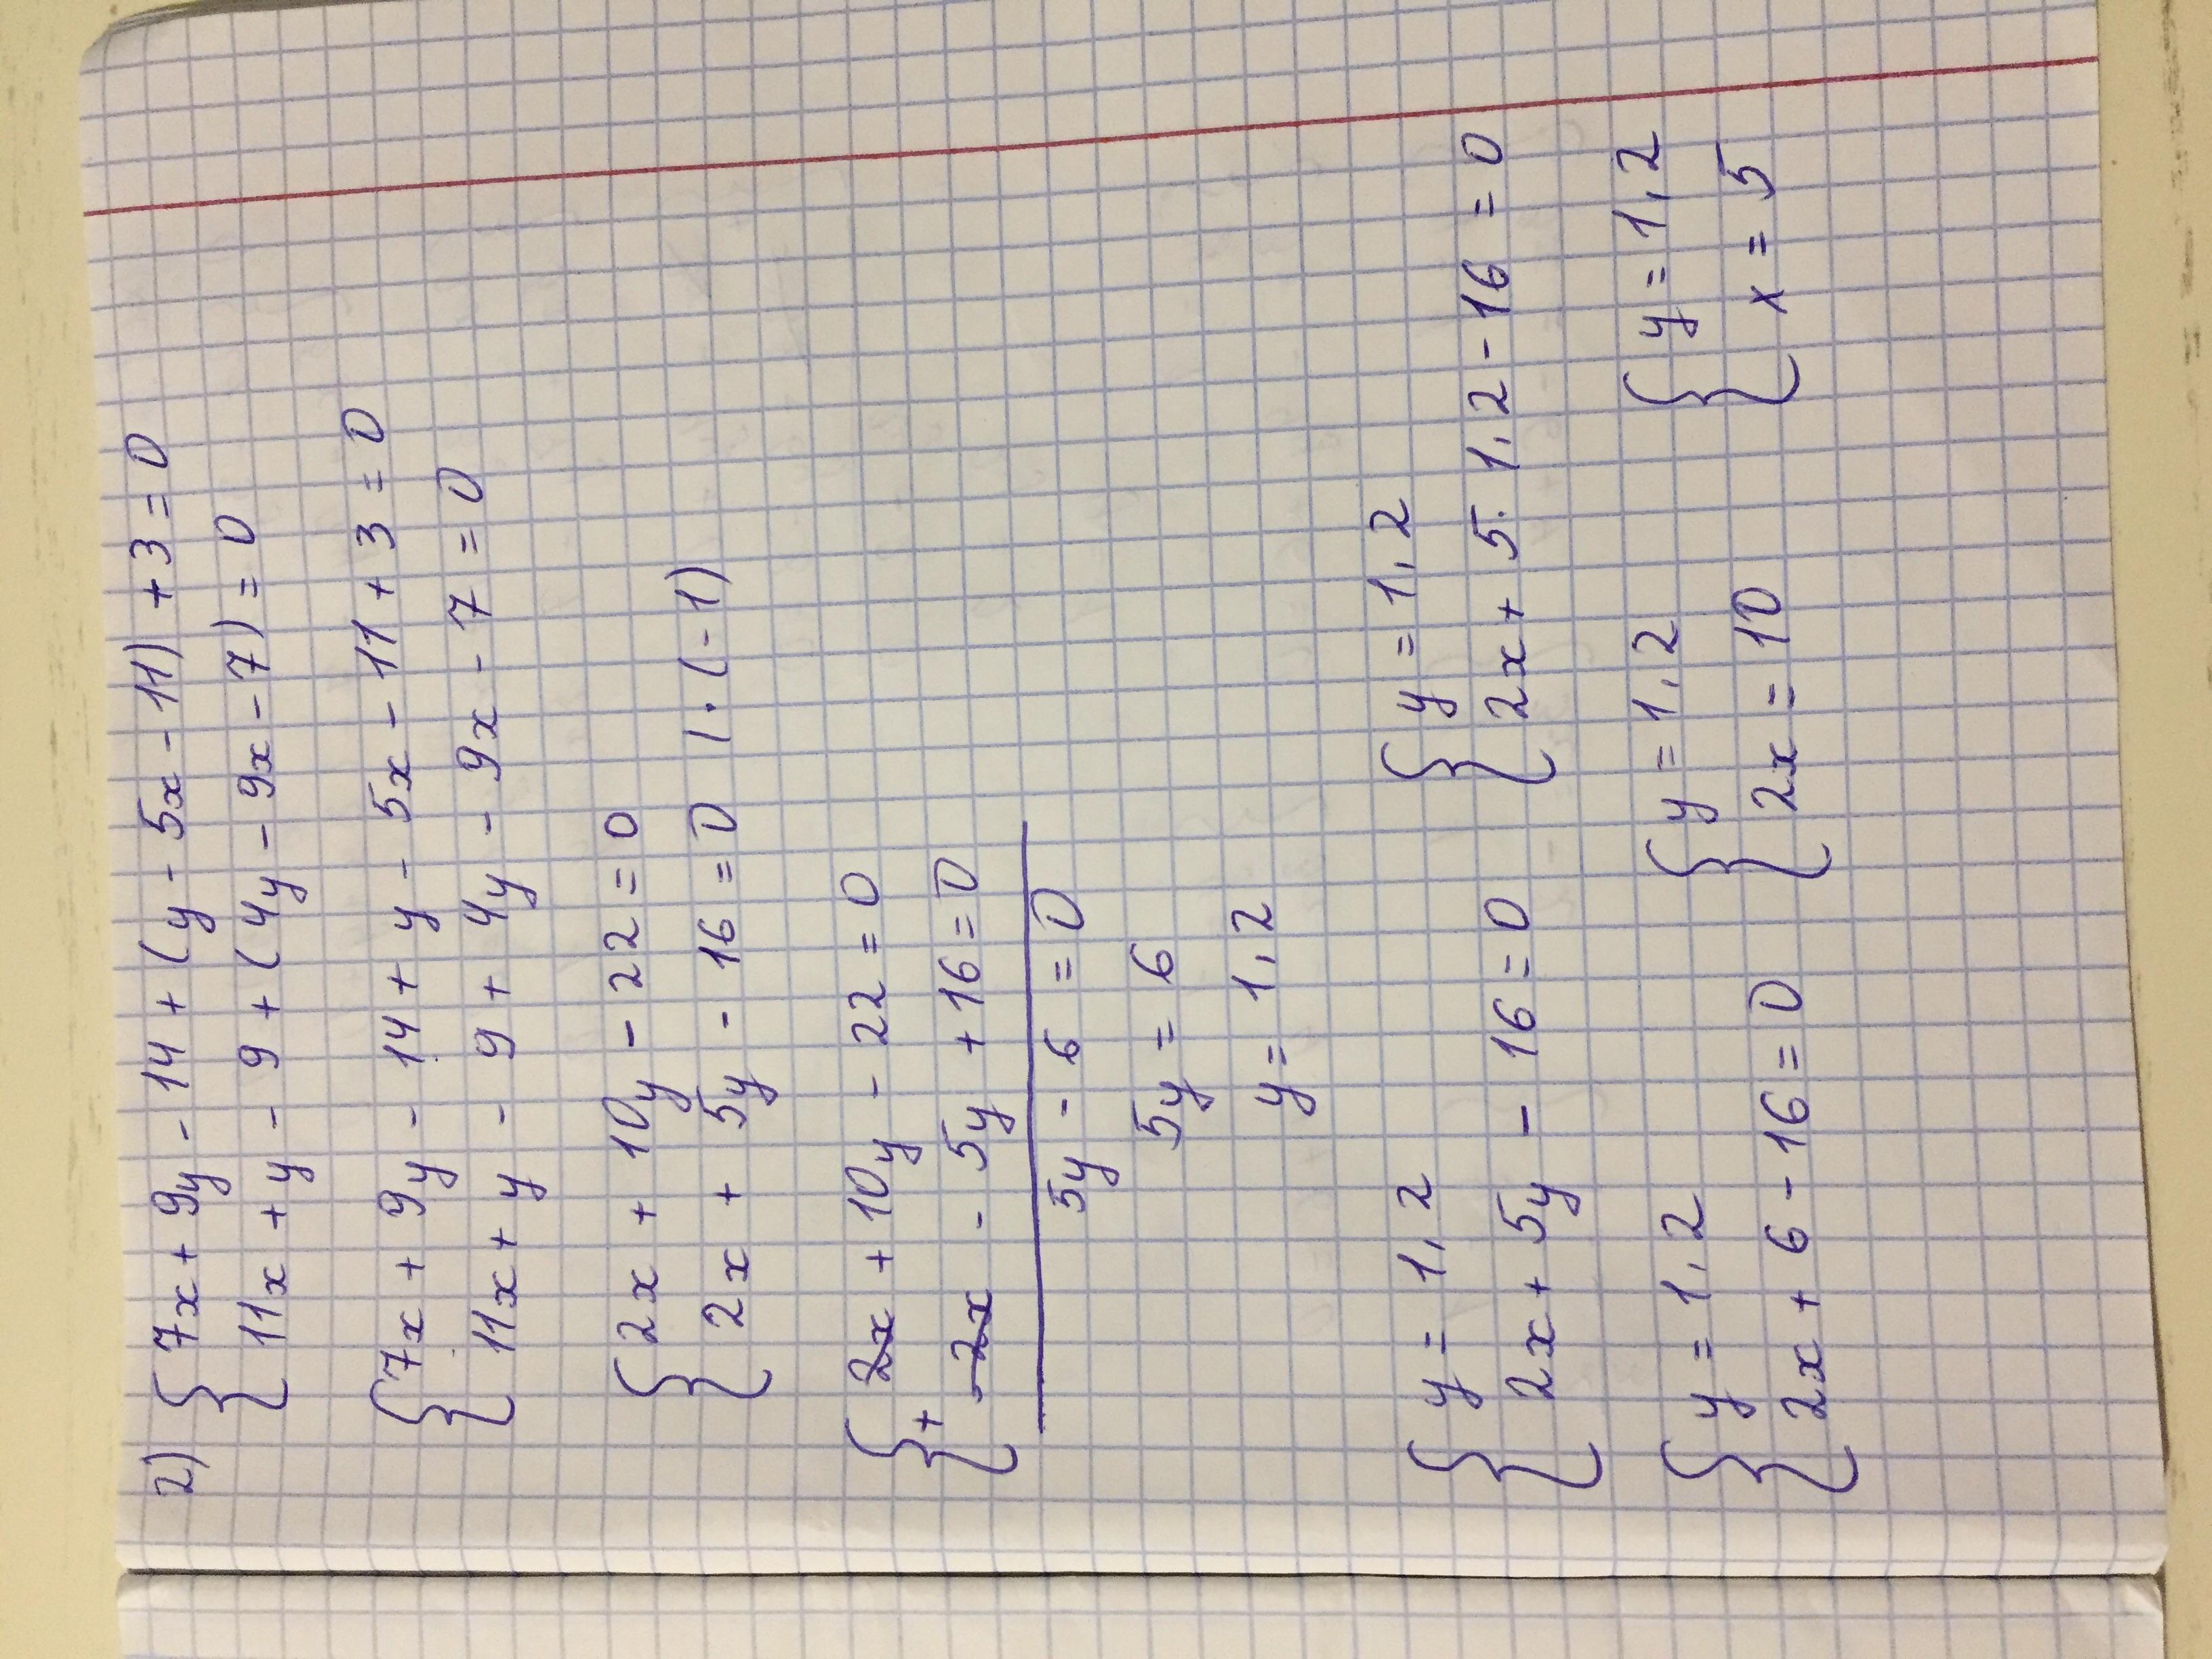 2) { 7x + 9y - 14 + (y - 5x - 11) + 3 = 0
11x + y - 9 + (4y - 9x - 7) = 0
{ 7x + 9y - 14 + y - 5x - 11 + 3 = 0
11x + y - 9 + 4y - 9x - 7 = 0
{ 2x + 10y - 22 = 0
2x + 5y - 16 = 0 | · (-1)
{ + 2x + 10y - 22 = 0
-2x - 5y + 16 = 0
5y - 6 = 0
5y = 6
y = 1,2
{ y = 1,2
2x + 5y - 16 = 0
{ y = 1,2
2x + 5 · 1,2 - 16 = 0
{ y = 1,2
2x + 6 - 16 = 0
{ y = 1,2
2x = 10
{ y = 1,2
x = 5